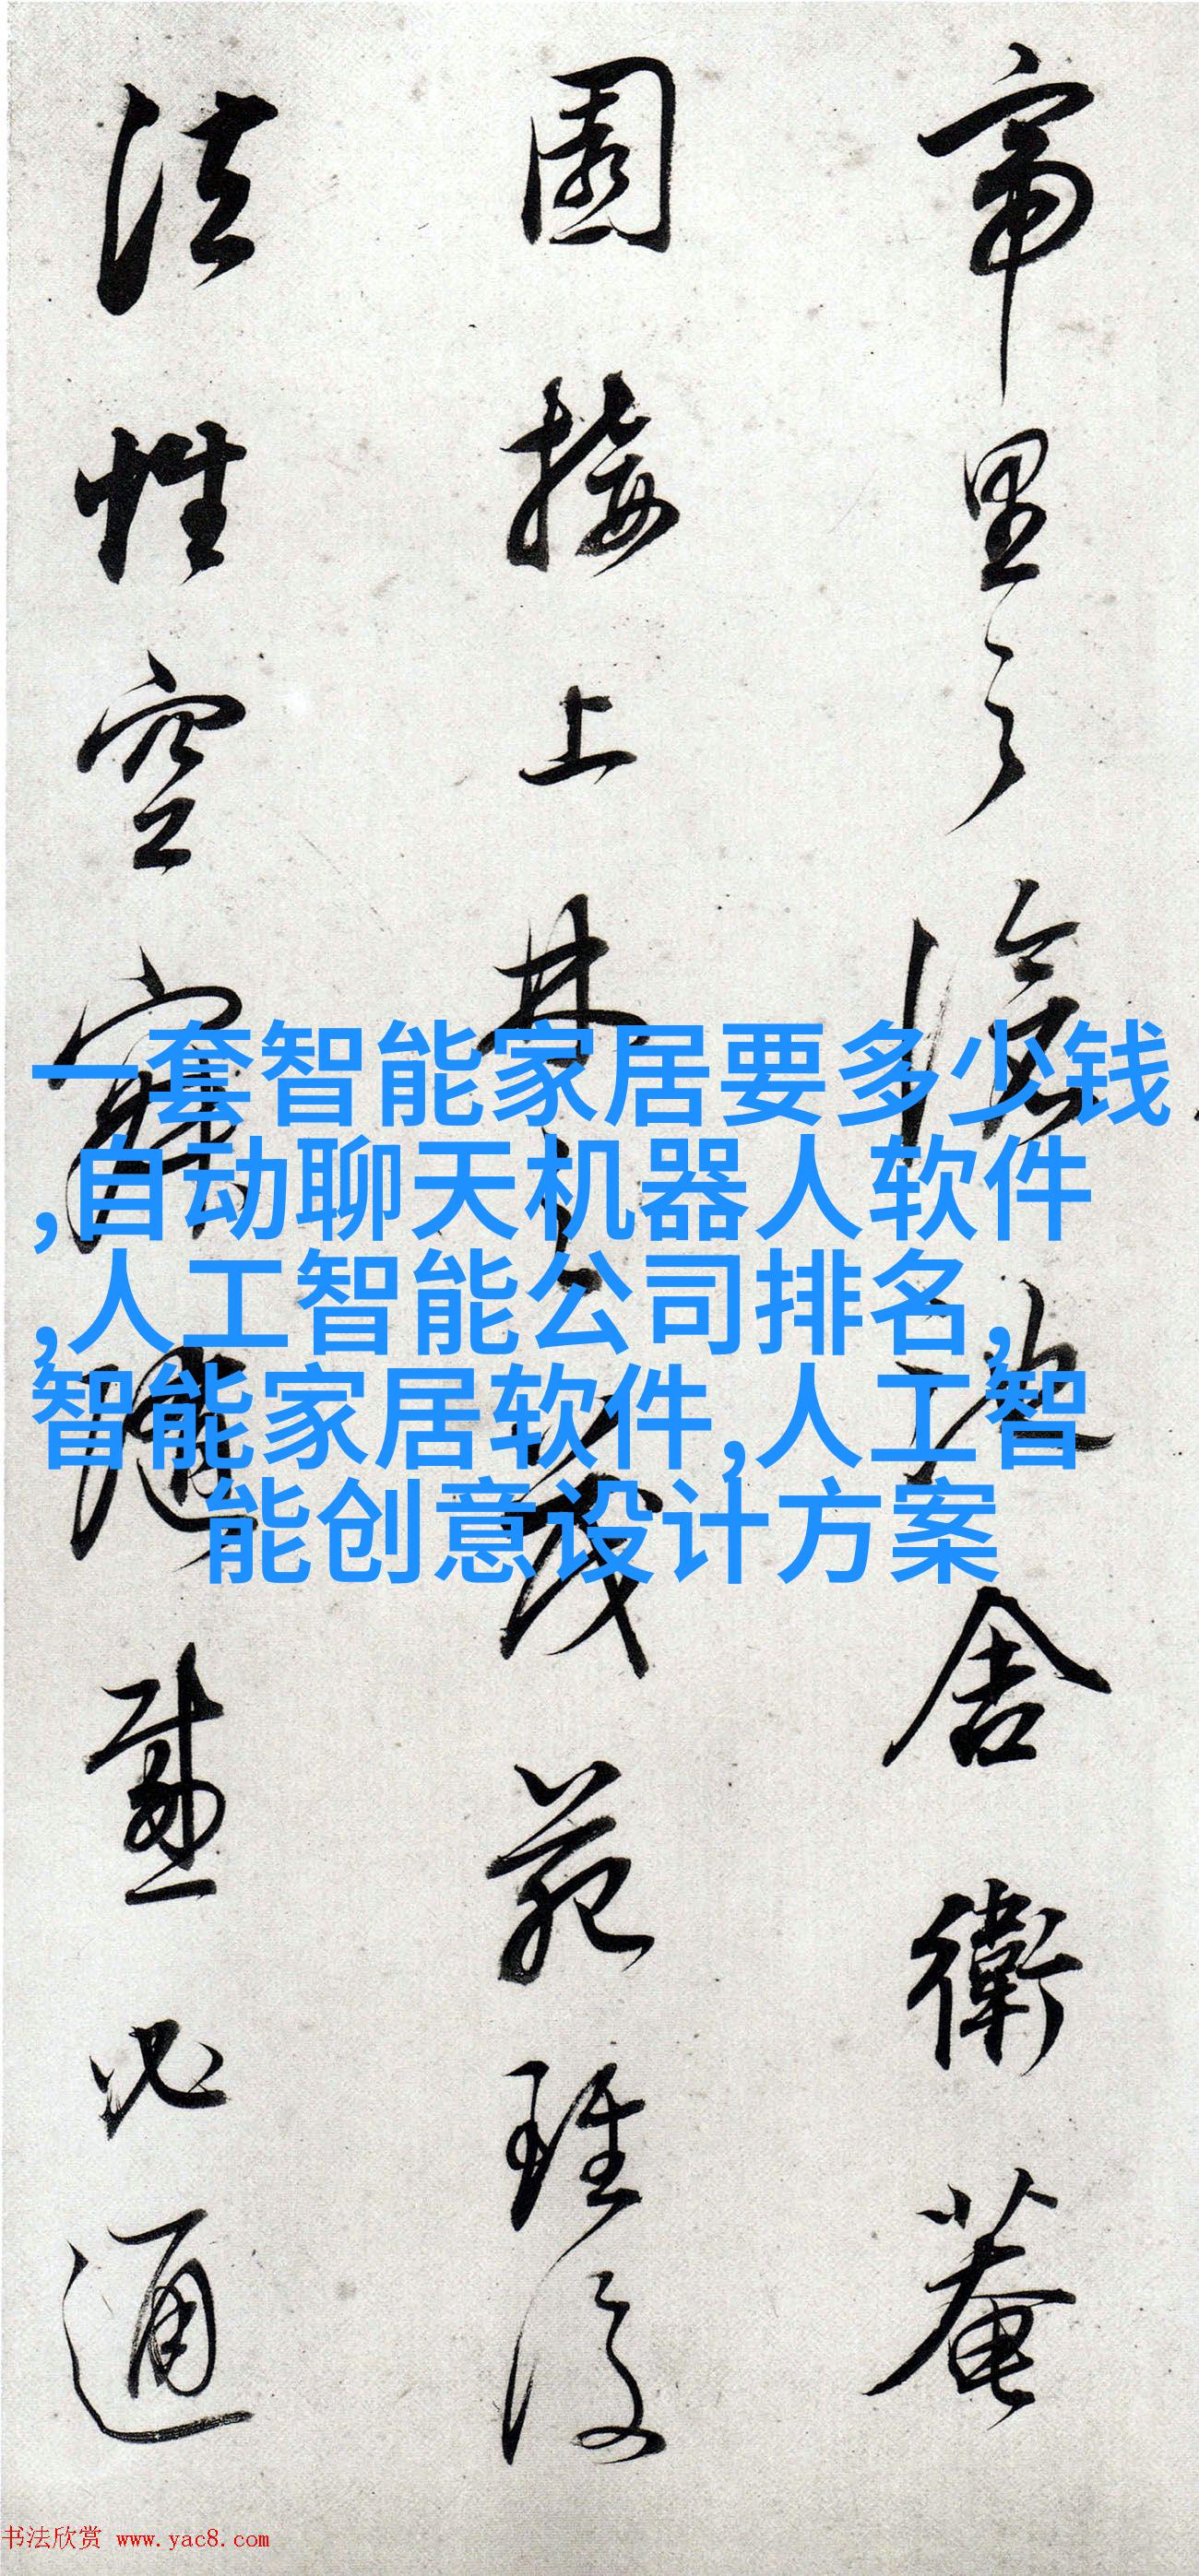 帝里之滄舍衛菴
園接上林之茂苑雖復
法性空寂隨感必通
一套智能家居要多少钱
,自动聊天机器人软件
,人工智能公司排名,
智能家居软件,人工智
能创意设计方案
书法欣赏 www.yac8.com